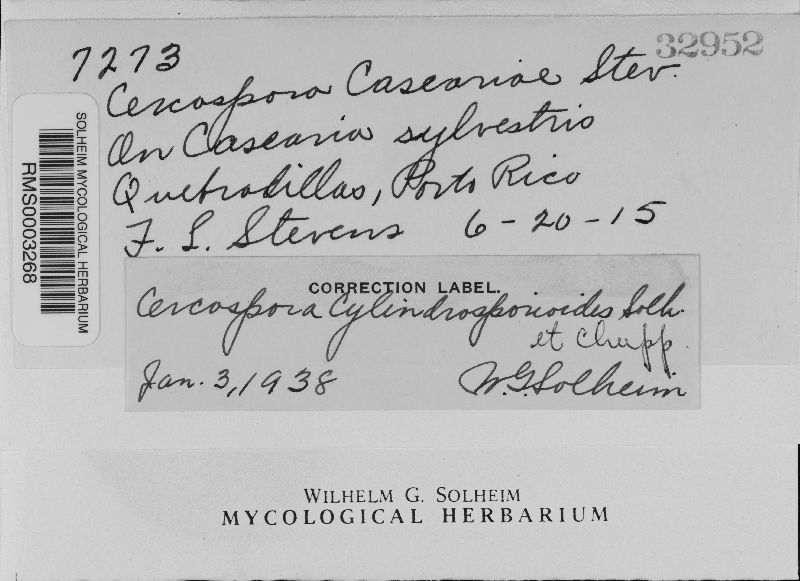 7273
32952
Cercospora Caseariae Stev.
On Casearia sylvestris
Quebradillas, Porto Rico
F. L. Stevens 6-20-15
SOLHEIM MYCOLOGICAL HERBARIUM
RMS0003268
CORRECTION LABEL.
Cercospora Cylindrosporioides Solh.
et Chupp.
Jan. 3, 1938 W.G. Solheim
WILHELM G. SOLHEIM
MYCOLOGICAL HERBARIUM